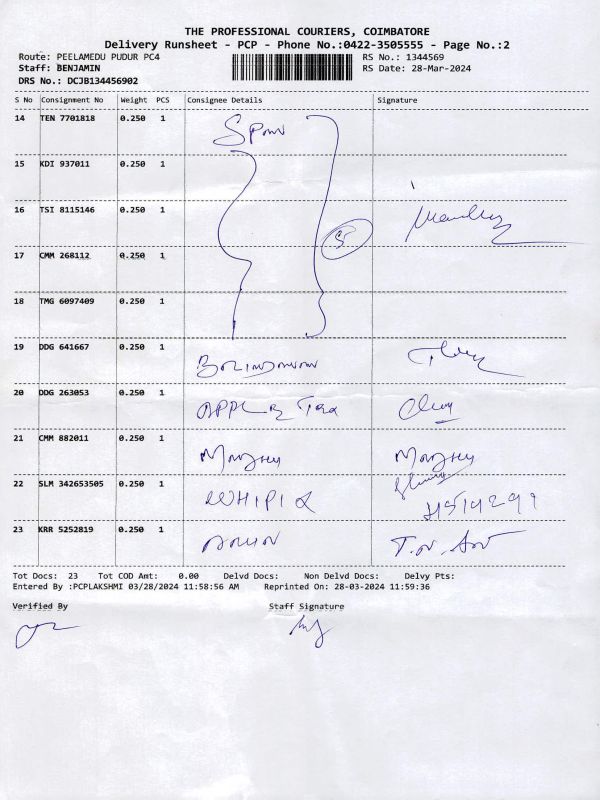 THE PROFESSIONAL COURIERS, COIMBATORE
Delivery Runsheet - PCP - Phone No.:0422-3505555 - Page No.:2
Route: PEELAMEDU PUDUR PC4 RS No.: 1344569
Staff: BENJAMIN RS Date: 28-Mar-2024
DRS No.: DCJB134456902
S No Consignment No Weight PCS Consignee Details Signature
14 TEN 7701818 0.250 1
15 KDI 937011 0.250 1
16 TSI 8115146 0.250 1
5
17 CMM 268112 0.250 1
18 TMG 6097409 0.250 1
19 DDG 641667 0.250 1
20 DDG 263053 0.250 1
21 CMM 882011 0.250 1
22 SLM 342653505 0.250 1
23 KRR 5252819 0.250 1
Tot Docs: 23 Tot COD Amt: 0.00 Delvd Docs: Non Delvd Docs: Delvy Pts:
Entered By :PCPLAKSHMI 03/28/2024 11:58:56 AM Reprinted On: 28-03-2024 11:59:36
Verified By Staff Signature